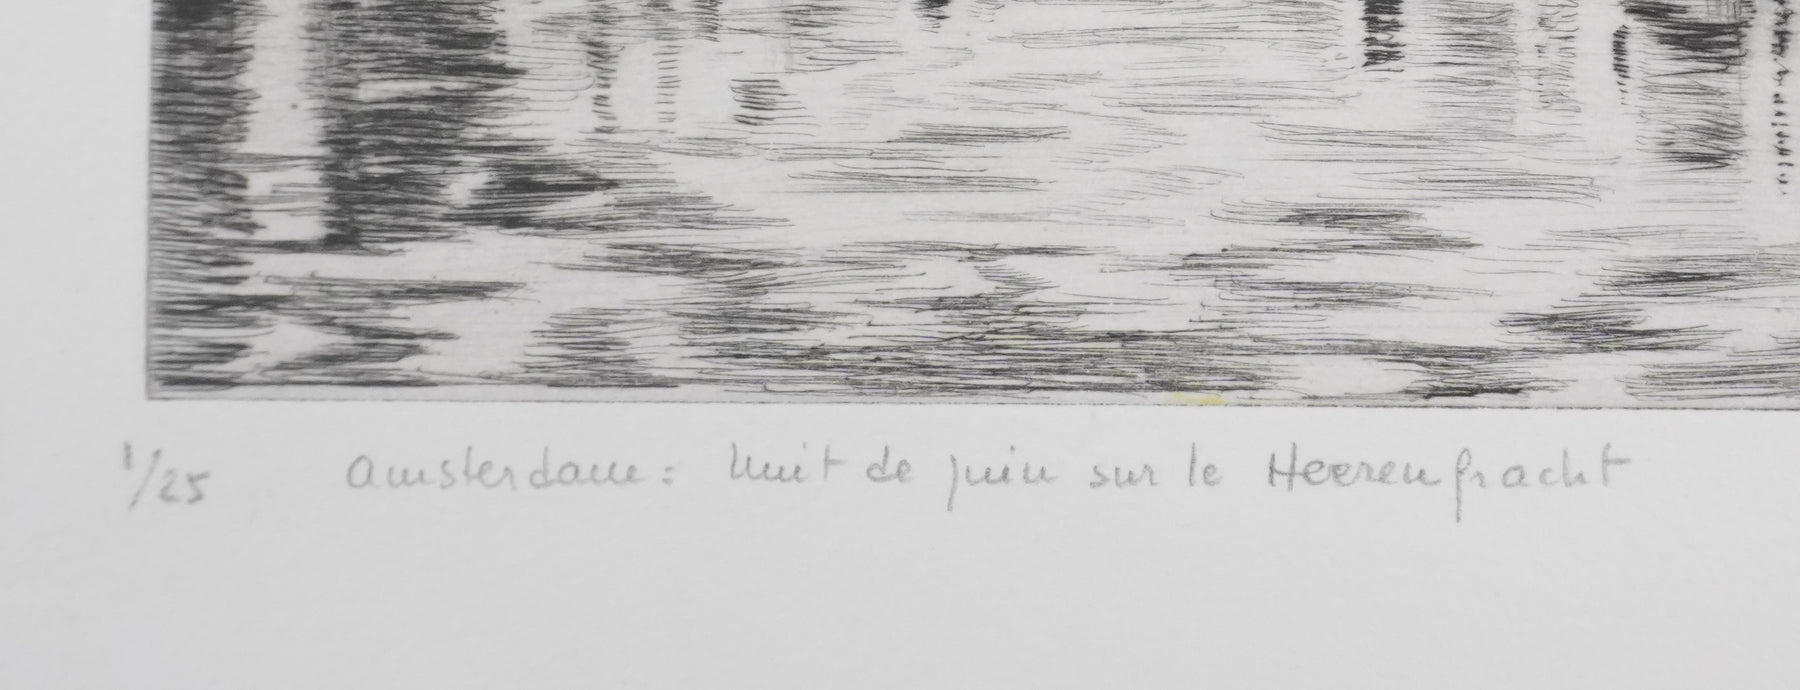 1/25 Amsterdam: Nuit de juin sur le Heerengracht